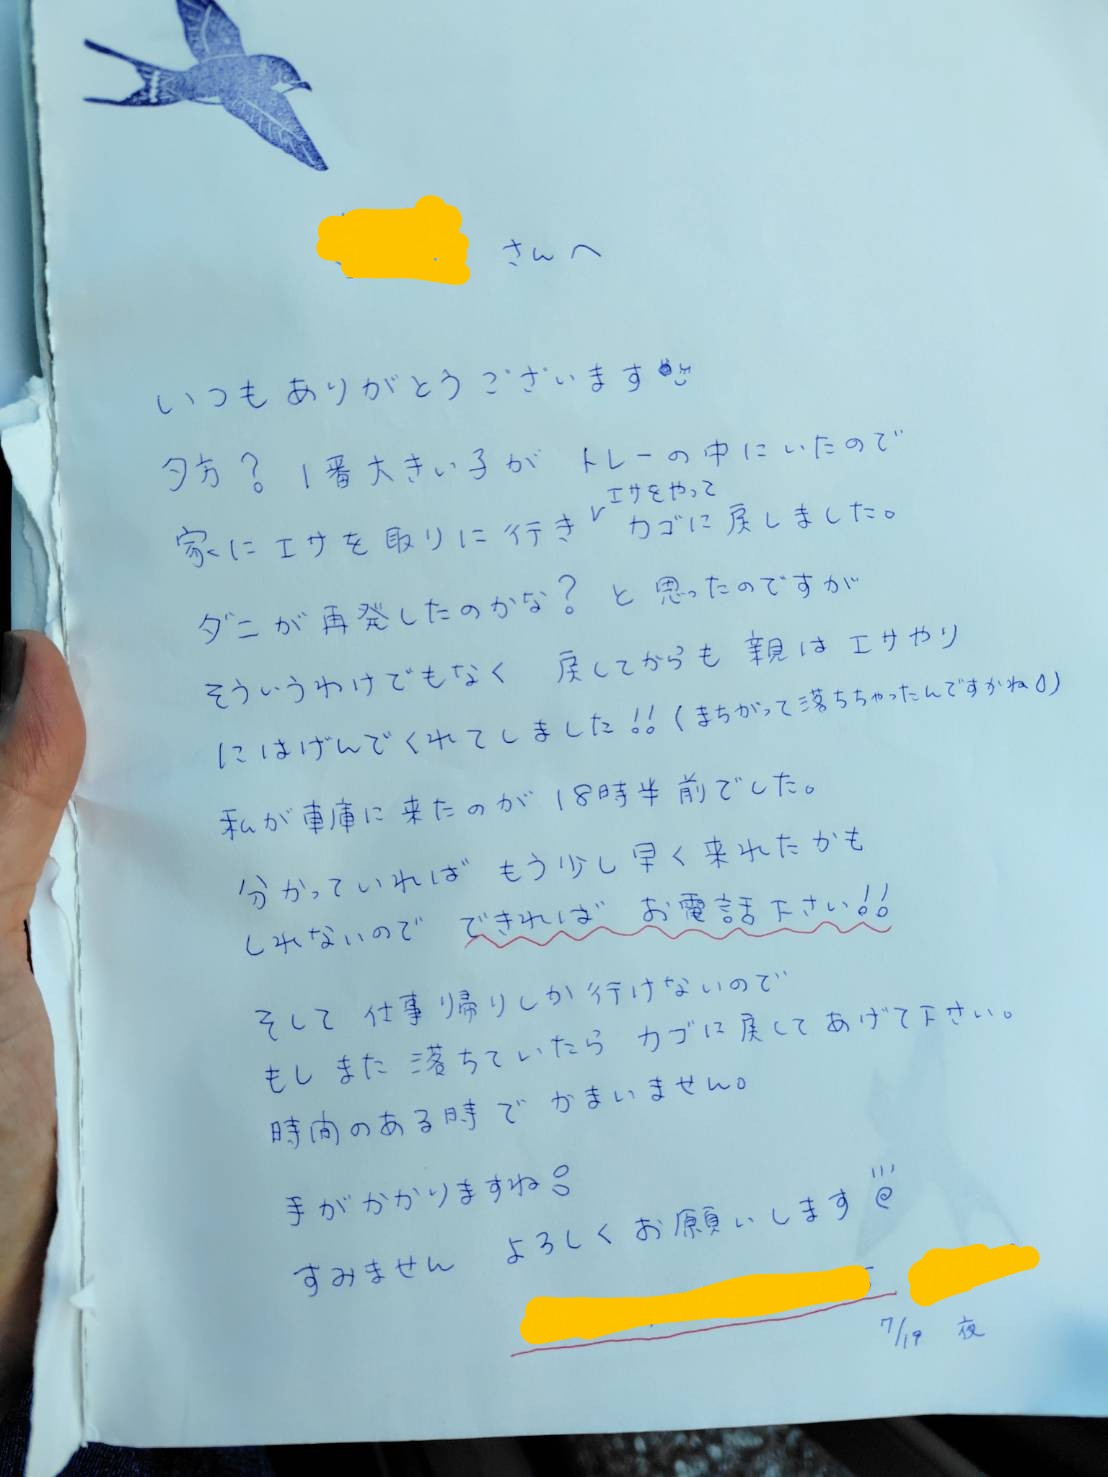 さんへ
いつもありがとうございます
夕方？1番大きい子がトレーの中にいたので
家にエサを取りに行きエサをやってカゴに戻しました。
ダニが再発したのかな？と思ったのですが
そういうわけでもなく 戻してからも親はエサやり
にはげんでくれてしました!!（まちがって落ちちゃったんですかね）
私が車庫に来たのが18時半前でした。
分かっていればもう少し早く来れたかも
しれないので できればお電話下さい!!
そして仕事帰りしか行けないので
もしまた落ちていたらカゴに戻してあげて下さい。
時間のある時でかまいません。
手がかかりますね
すみません よろしくお願いします
7/19 夜